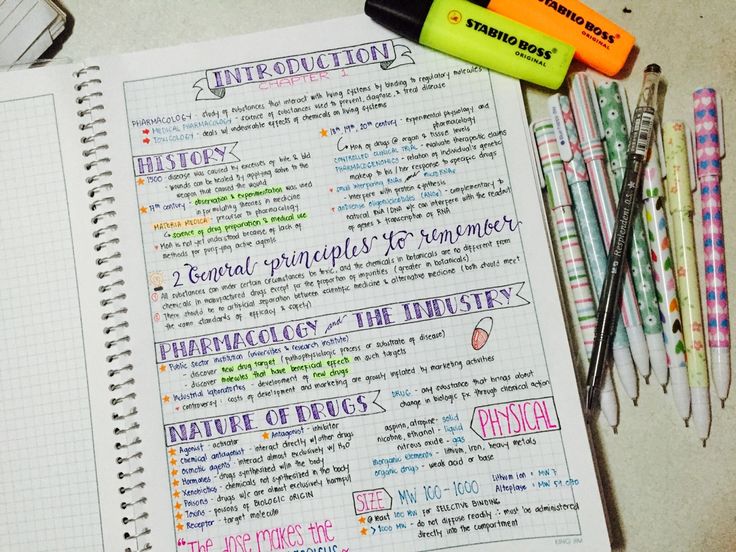 INTRODUCTION
CHAPTER 1
PHARMACOLOGY - study of substances that interact with living systems by binding to regulatory molecules
MEDICAL PHARMACOLOGY - science of substances used to prevent, diagnose, & treat disease
TOXICOLOGY - deals w/ undesirable effects of chemicals on living systems
HISTORY
1500 - disease was caused by excesses of bile & bld
wounds can be healed by applying salve to the
weapon that caused the wound
17th century - observation & experimentation was used
in formulating theories in medicine
MATERIA MEDICA - precursor to pharmacology
science of drug preparation & medical use
MoA is not yet understood because of lack of
methods for purifying active agents
18th, 19th, 20th century - experimental physiology and
pharmacology
MoA of drugs @ organ & tissue levels
CONTROLLED CLINICAL TRIAL - evaluate therapeutic claims
PHARMACOGENOMICS - relation of individual's genetic
makeup to his / her response to specific drugs
small interfering RNAs and micro RNAs
- interfere with protein synthesis
antisense oligonucleotides (ANOs) - complementary to
natural RNA / DNA w/c can interfere with the readout
of genes & transcription of RNA
2 General principles to remember
① All substances can under certain circumstances be toxic, and the chemicals in botanicals are no different from
chemicals in manufactured drugs except for the proportion of impurities (greater in botanicals)
② There should be no artificial separation between scientific medicine & alternative medicine (both should meet
the same standards of efficacy & safety)
PHARMACOLOGY and THE INDUSTRY
Public Sector institution (universities & research institute)
- discover new drug target (pathophysiologic process or substrate of disease)
- discover molecules that have beneficial effects on such targets
Industrial laboratories - development of new drugs
controversy: costs of development and marketing are grossly inflated by marketing activities
NATURE OF DRUGS
Agonist - activator Antagonist - inhibitor
Chemical antagonist - interact directly w/ other drugs
Osmotic agents - interact almost exclusively w/ H2O
Hormones - drugs synthesized w/in the body
Xenobiotics - chemicals not synthesized in the body
Poisons - drugs w/c are almost exclusively harmful
Toxins - poisons of BIOLOGIC ORIGIN
Receptor - target molecule
DRUG - any substance that brings about
change in biologic fx through chemical action
PHYSICAL
aspirin, atropine - solid
nicotine, ethanol - liquid
nitrous oxide - gas
inorganic elements - lithium, iron, heavy metals
organic drugs - weak acid or base
SIZE
MW 100-1000
Lithium ion: MW 7
Alteplase: MW 59,050
@ least 100 MW for SELECTIVE BINDING
> 1000 MW - do not diffuse readily ∴ must be administered
directly into the compartment
"The dose makes the
STABILO BOSS
ORIGINAL
STABILO BOSS
ORIGINAL